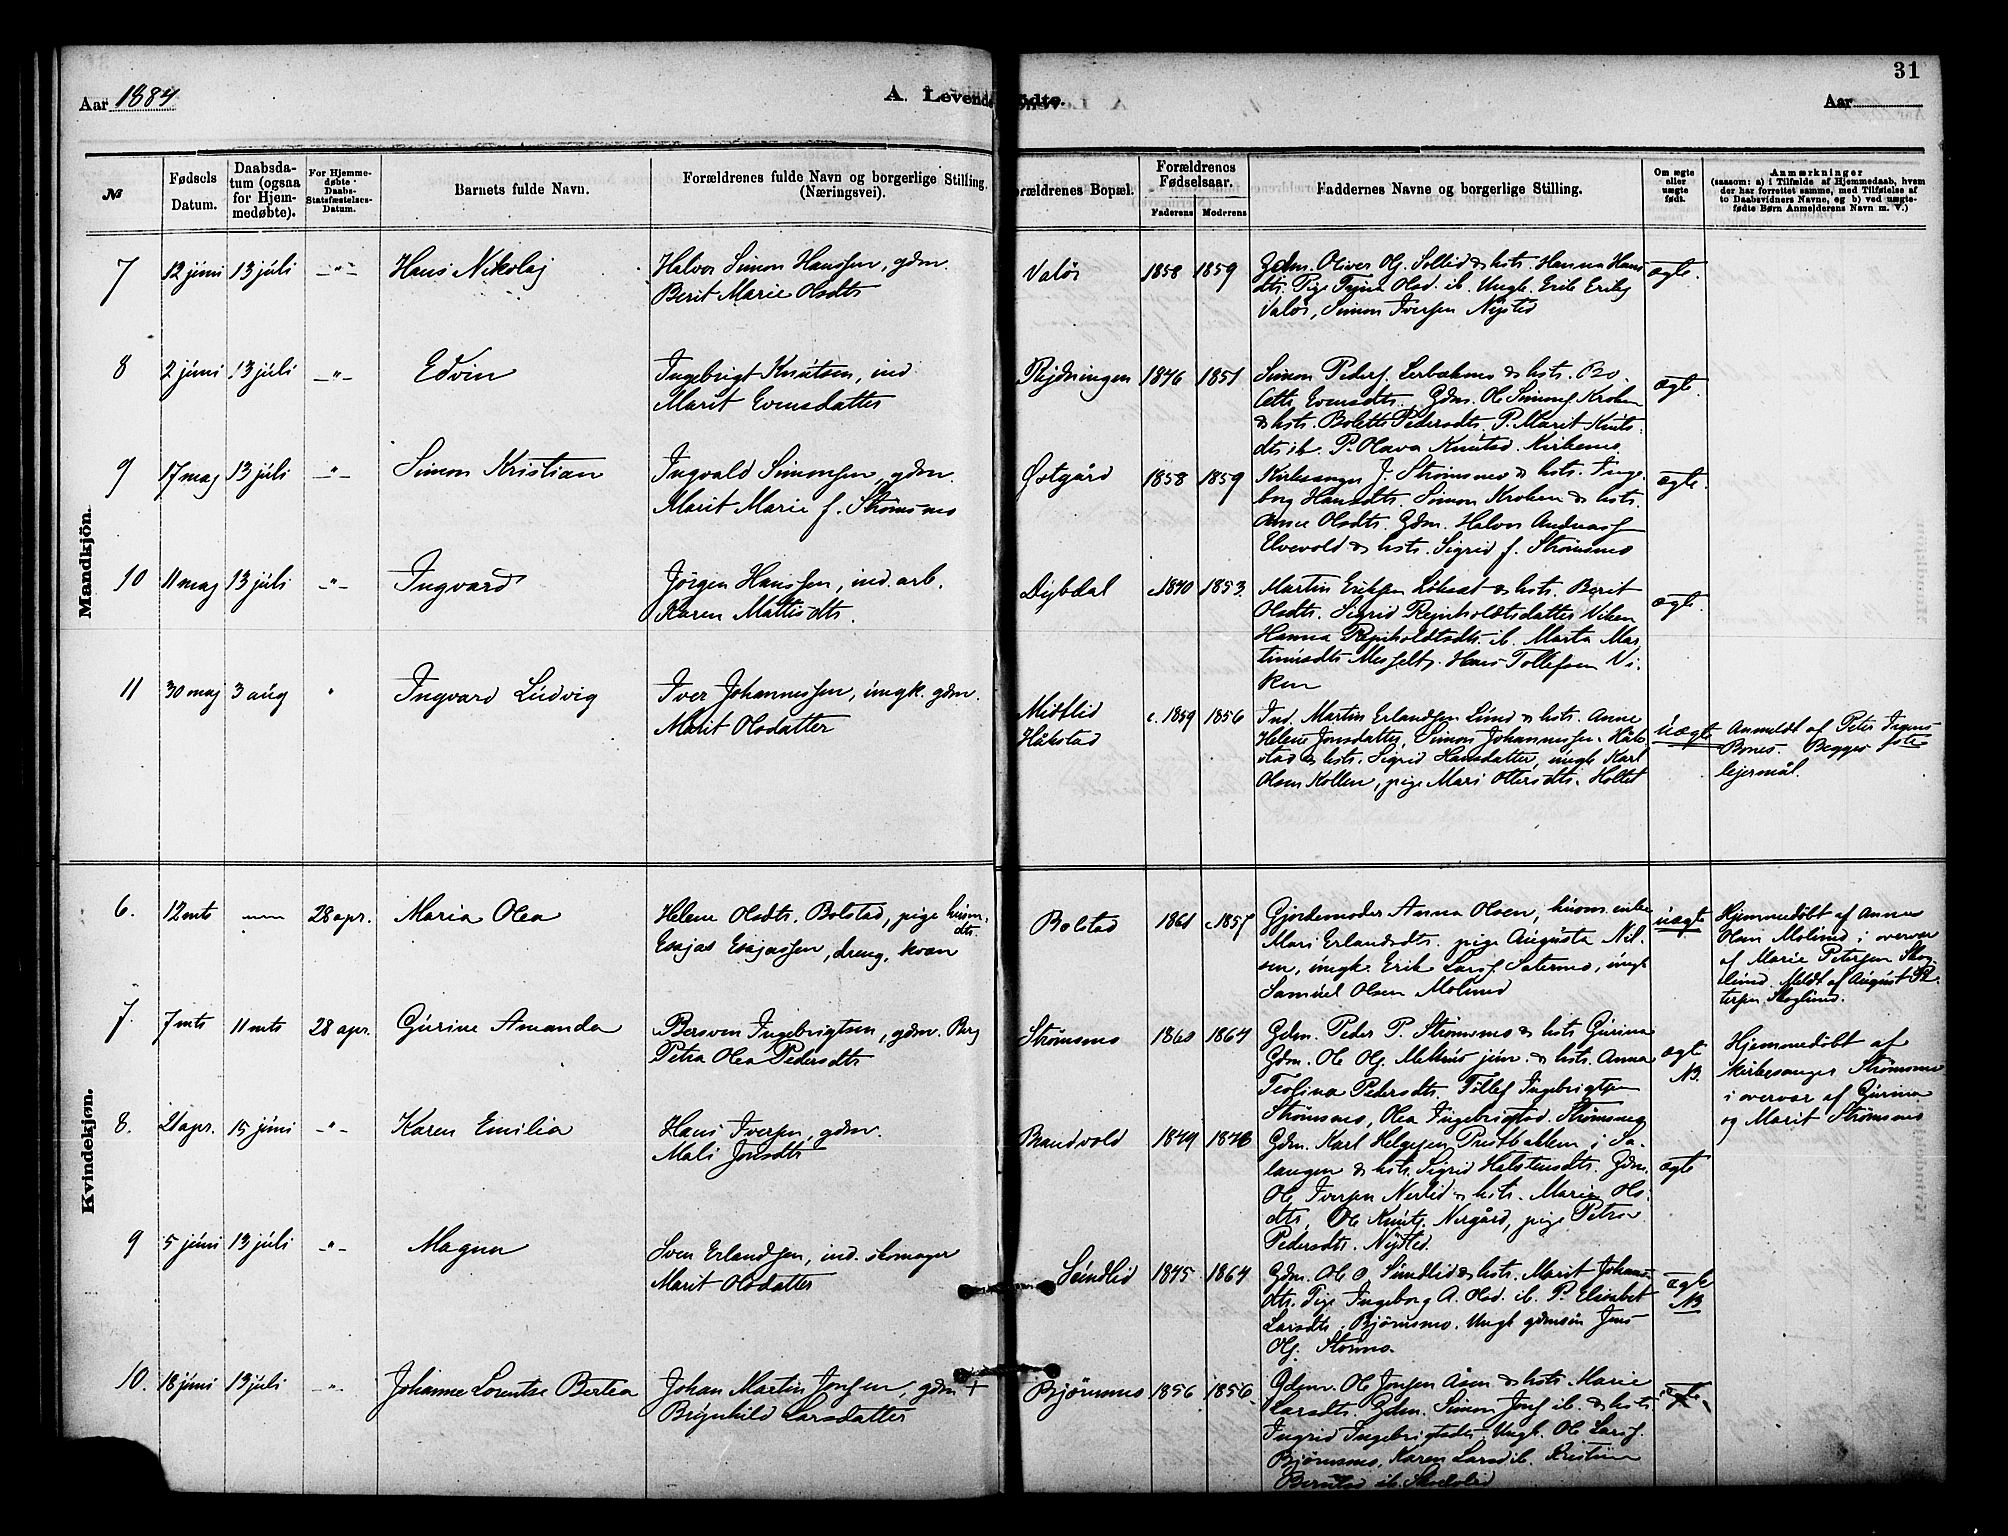 31
Aar 1884
A. Levendefødte.
Aar
№
Fødsels Datum.
Daabsdatum (ogsaa for Hjemmedøbte).
For Hjemmedøbte Daabs-Statsfæstelses-Datum.
Barnets fulde Navn.
Forældrenes fulde Navn og borgerlige Stilling. (Næringsvei).
Forældrenes Bopæl.
Forældrenes Fødselsaar.
Faderens
Moderens
Faddernes Navne og borgerlige Stilling.
Om ægte eller uægte født.
Anmærkninger
(saasom: a) i Tilfælde af Hjemmedaab, hvem
der har forrettet samme, med Tilføielse af
to Daabsvidners Navne, og b) ved uægte-
fødte Børn Anmelderens Navn m. V.)
Mandkjön.
7 12 juni 13 juli -"- Hans Nikolaj
Halvor Simon Hanssen, gdm.
Berit Marie Olsdtr
Valør 1858 1859
Gdm. Oliver Olj. Sollid & hstr. Hanna Hans
dtr. Pige Trina Olsd. ib. Ungk. Erik Eriks
Valør, Simon Iversen Nysted
ægte.
8 2 juni 13 juli -"- Edvin
Ingebrigt Knutsen, ind
Marit Evensdatter
Rydningen 1846 1851
Simon Peders. Lerbakmo & hstr. Bo-
lette Evensdtr. Gdm. Ole Simons Kroken
& hstr. Bolette Pedersdtr. P. Marit Knuts-
dtr ib. P. Olava Knutsd. Kirkemo
ægte.
9 17 maj 13 juli -"- Simon Kristian
Ingvald Simonsen, gdm.
Marit Marie f. Strømsmo
Østgård 1858 1859
Kirkesanger J. Strømsmo & hstr. Inge-
borg Hansdtr. Simon Kroken & hstr.
Anne Olsdtr. Gdm. Halvor Andreass
Elvevold & hstr. Sigrid f. Strømsmo
ægte.
10 11 maj 13 juli -"- Ingvard
Jørgen Hanssen, ind. arb.
Karen Mattisdtr.
Dybdal c.1840 1853.
Martin Eriksen Løksæt & hstr. Berit
Olsdtr. Sigrid Reinholdtsdatter Viken
Hanna Reinholdtsdtr. ib. Marta Mar-
tinusdtr Messelt. Hans Tollefsen Vi-
ken
ægte.
11 30 maj 3 aug " Ingvard Ludvig
Iver Johannessen, ungk. gdm.
Marit Olsdatter
Midtlid
Håkstad
c. 1859 1856
Ind. Martin Erlandsen Lund & hstr. Anne
Helene Jonsdatter, Simon Johannessen Håk-
stad & hstr. Sigrid Hansdatter, ungk Karl
Olsen Kollen, pige Mari Ottersdtr. Holtet
uægte
Anmeldt af Peter
Bones. Begges 1ste
lejermål.
Kvindekjøn.
6. 12 mts 28 apr. Maria Olea
Helene Olsdtr. Bolstad, pige husm.
dtr.
Esajas Esajassen, dreng, kvæn
Bolstad 1861 c.1857
Gjordemoder Anna Olsen, husm. enke
Mari Erlandsdtr. pige Augusta Nil-
sen, ungk. Erik Larss. Sætermo, ungk
Samuel Olsen Molund
uægte
Hjemmedøbt af Anna
Olsen Molund i overvær
af Marie Petersen Skog-
lund. Meldt af August Pe-
tersen Skoglund.
7. 7 mts 11 mts 28 apr. Gurine Amanda
Bersven Ingebrigtsen, gdm. Berg
Petra Olea Pedersdtr
Strømsmo 1860 1864
Gdm. Peder P. Strømsmo & hstr Gurina
Gdm. Ole Olj. Melhus jun. & hstr. Anna
Teolina Pedersdtr. Tollef Ingebrigtsen
Strømsmo, Olea Ingebrigtsd. Strømsmo
ægte
NB.
Hjemmedøbt af
Kirkesanger Strømsmo
i overvær af Gurina
og Marit Strømsmo
8. 21 apr. 15 juni -"- Karen Emilia
Hans Iversen, gdm.
Mali Jonsdtr
Brandvold 1849 1846
Gdm. Karl Helgesen Prestbakken i Sa-
langen & hstr. Sigrid Halstensdtr. Gdm.
Ole Iversen Nerlid & hstr. Marie Ols-
dtr, Ole Knuts. Nergård, pige Petra
Pedersdtr. Nysted.
ægte
9 5 juni 13 juli -"- Magna
Sven Erlandsen, ind. skomager
Marit Olsdatter
Sundlid 1845 1864
Gdm. Ole O. Sundlid & hstr. Marit Johans
dtr. Pige Ingeborg A. Olsd. ib. P. Elisabet
Larsdtr. Bjørnsmo. Ungk gdmsøn Jens
Olj. Stormo.
ægte
NB
10. 18 juni 13 juli -"- Johanne Lorentze Bertea
Johan Martin Jonsen, gdm +
Brynhild Larsdatter
Bjørnsmo 1856 1856
Gdm. Ole Jonsen Åsen & hstr. Marie
Larsdtr. Gdm. Simon Jons ib. & hstr
Ingrid Ingebrigtsdtr. Ungk. Ole Larss.
Bjørnsmo, Karen Larsd ib. Kristine
Berntsd ib.
ægte